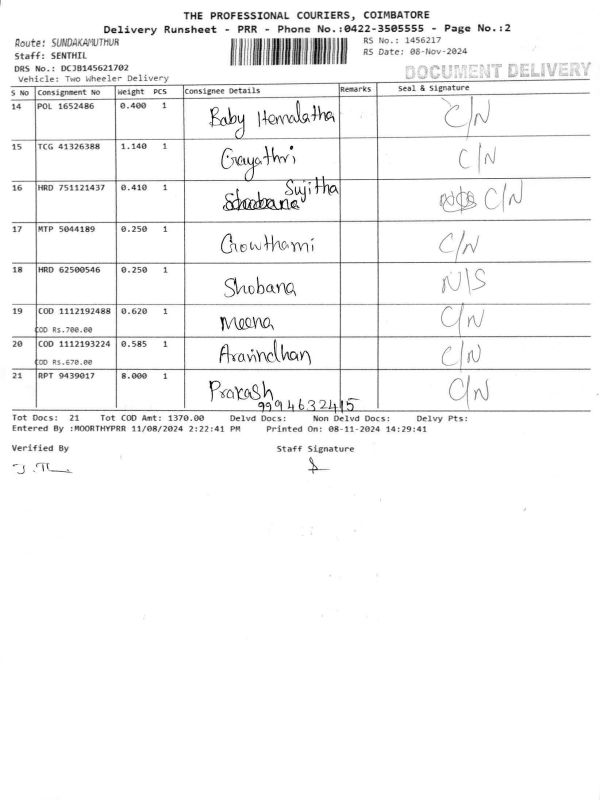 THE PROFESSIONAL COURIERS, COIMBATORE
Delivery Runsheet - PRR - Phone No.:0422-3505555 - Page No.:2
Route: SUNDAKAMUTHUR RS No.: 1456217
Staff: SENTHIL RS Date: 08-Nov-2024
DRS No.: DCJB145621702 DOCUMENT DELIVERY
Vehicle: Two Wheeler Delivery
S No Consignment No Weight PCS Consignee Details Remarks Seal & Signature
14 POL 1652486 0.400 1 Baby Hemalatha C/N
15 TCG 41326388 1.140 1 Gayathri C/N
16 HRD 751121437 0.410 1 Sujitha C/N
Shobana
17 MTP 5044189 0.250 1 Gowthami C/N
18 HRD 62500546 0.250 1 Shobana N/S
19 COD 1112192488 0.620 1 Meena C/N
COD Rs.700.00
20 COD 1112193224 0.585 1 Aravindhan C/N
COD Rs.670.00
21 RPT 9439017 8.000 1 Prakash C/N
9994632415
Tot Docs: 21 Tot COD Amt: 1370.00 Delvd Docs: Non Delvd Docs: Delvy Pts:
Entered By :MOORTHYPRR 11/08/2024 2:22:41 PM Printed On: 08-11-2024 14:29:41
Verified By Staff Signature